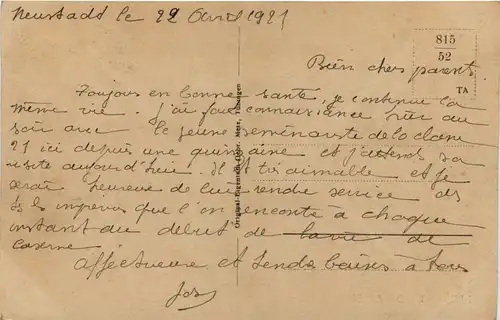 Neustadt le 22 Avril 1921
815
52
TA
Bien chers parents
Toujours en bonne santé, je continue la
même vie. J'ai fait connaissance hier au
soir avec le jeune séminariste de la classe
21 ici depuis une quinzaine et j'attends sa
visite aujourd'hui. Il est très aimable et je
serai heureux de lui rendre service dès
que l'on rencontre à chaque
instant au début de la vie de
caserne
Affectueux et tendes baisers à tous
Jos
Original-Eigentum